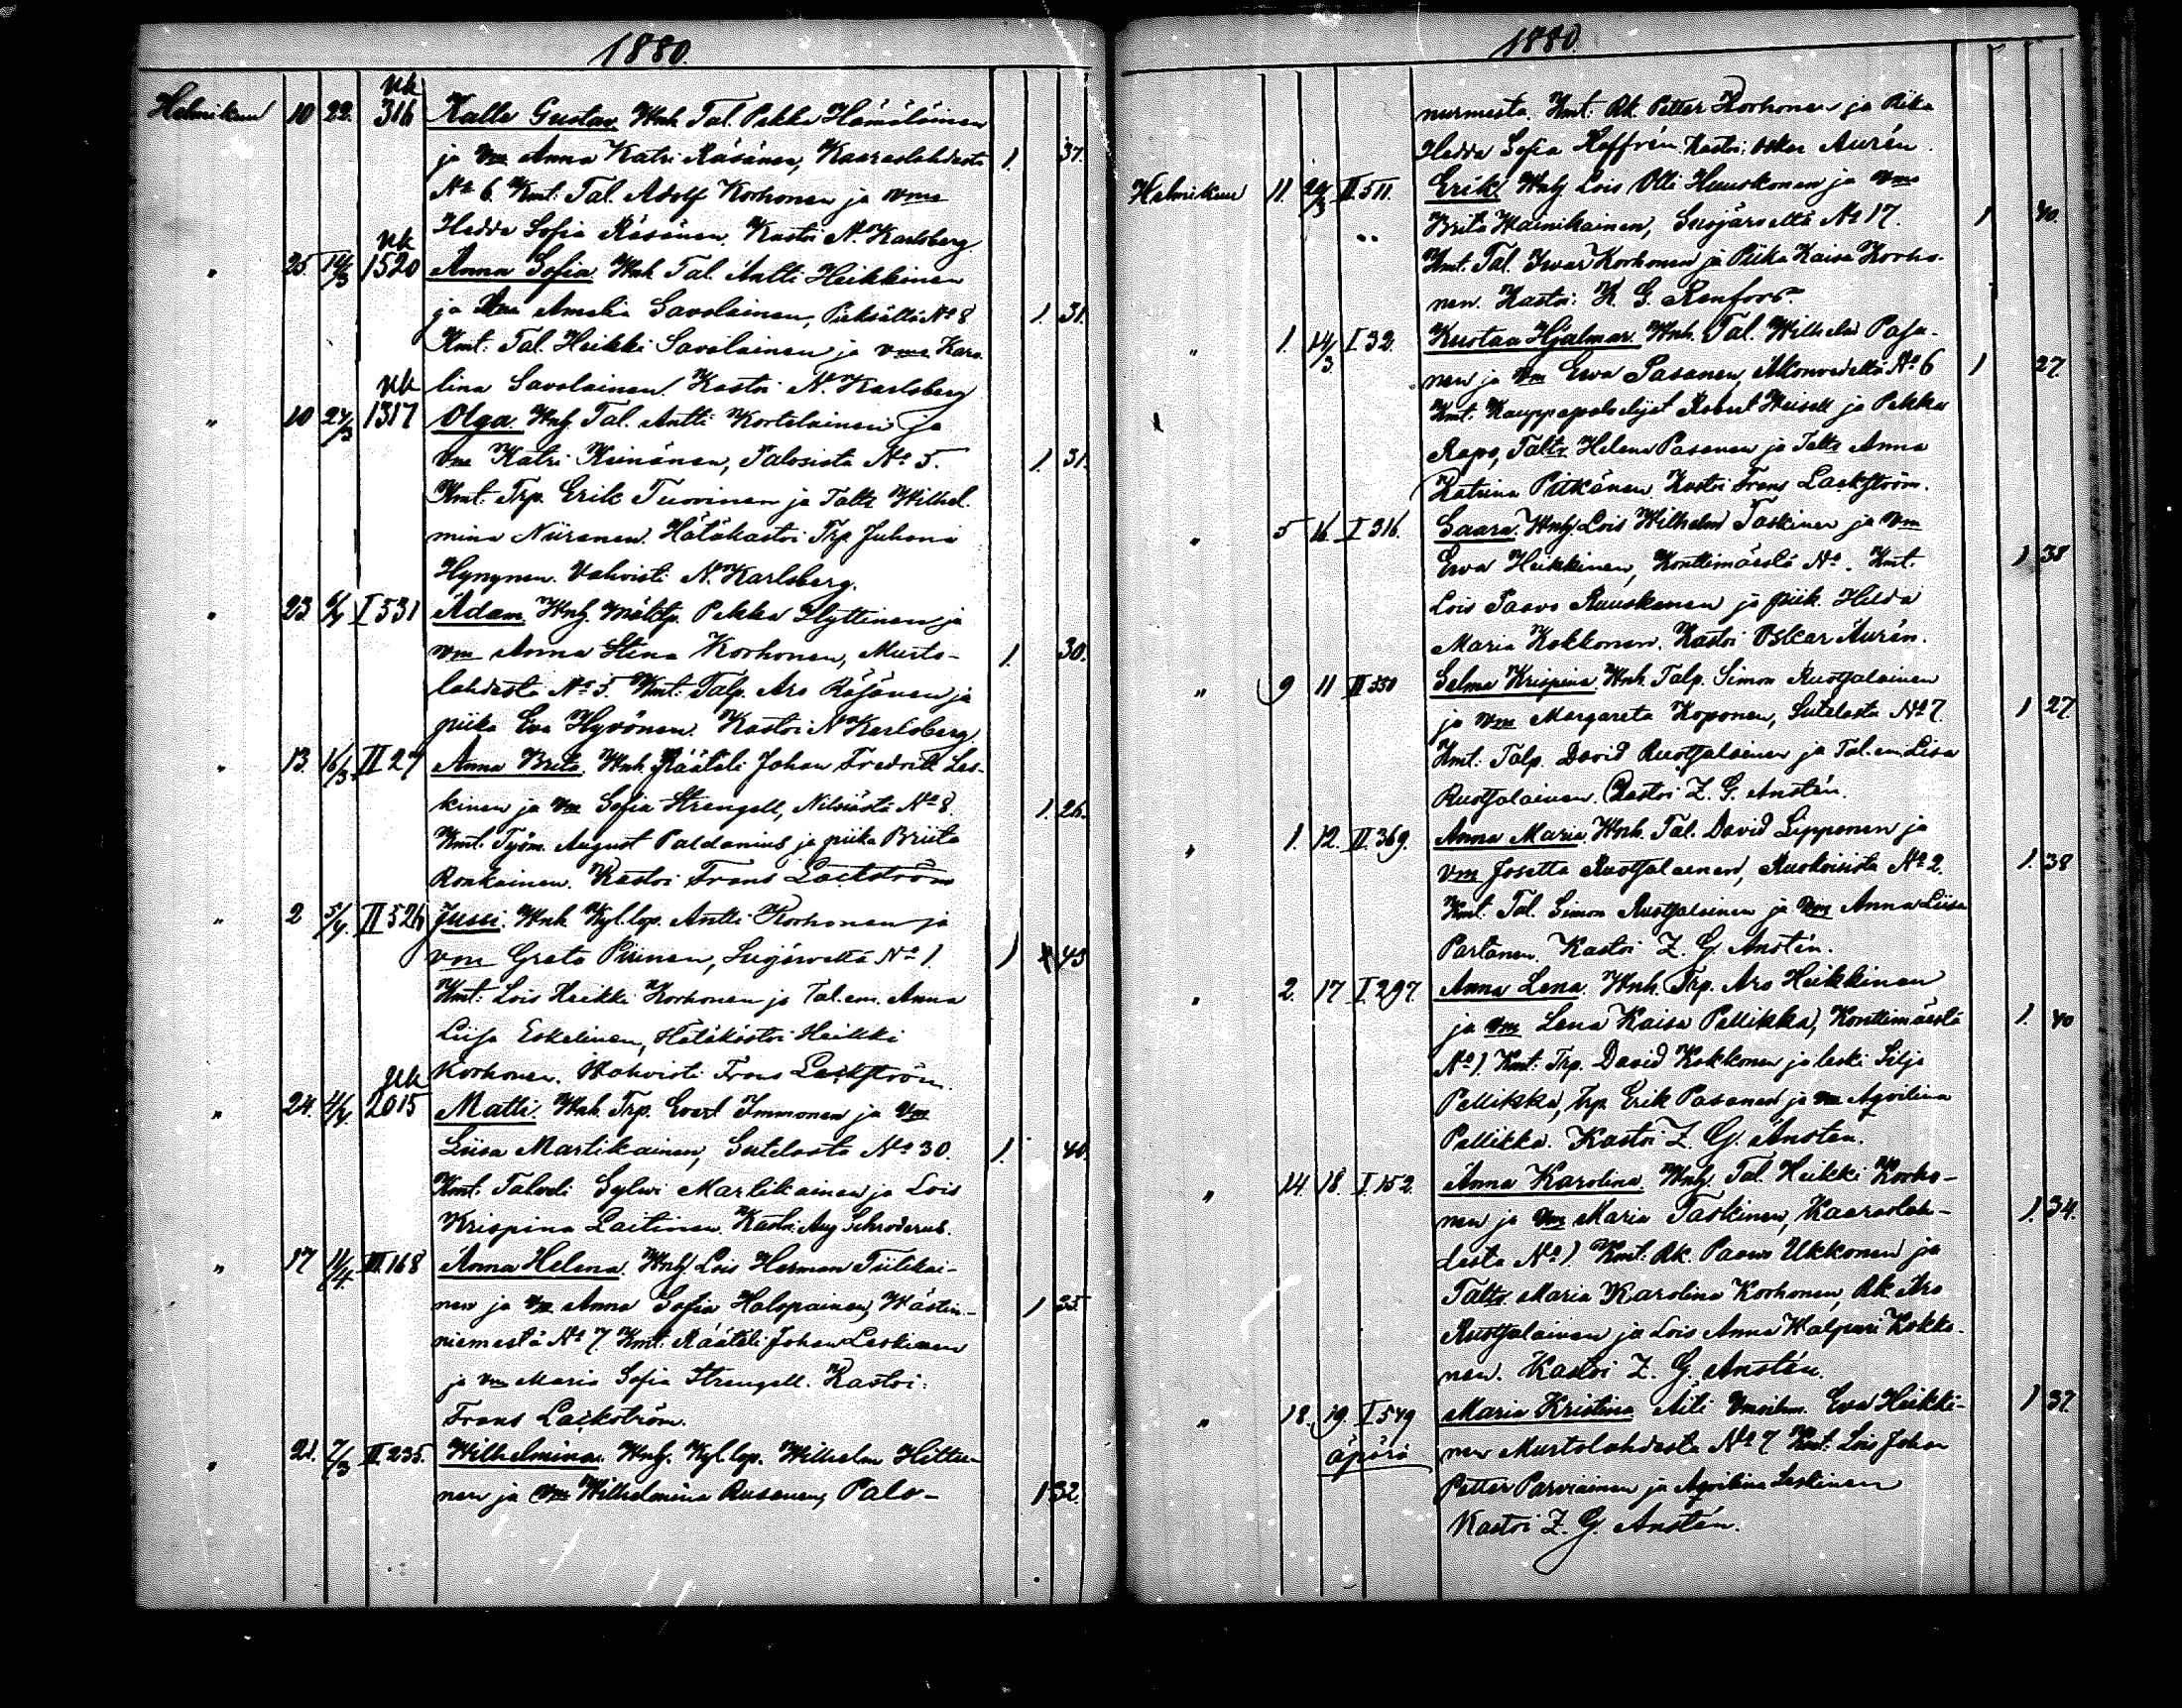 1880.
Helmikuu 10 22. Rk 316 Kalle Gustav. Wnh. Tal. Pekka Hämäläinen
ja Vm Anna Katri Räsänen, Kaaraslahdesta 1. 37.
No 6. Kmt: Tal. Adolf Korhonen ja Vmo
Hedda Sofia Räsänen. Kastoi N. Karlsberg.
" 25. 14/3 1520 Anna Sofia. Wnh. Tal. Antti Heikkinen
ja Vm Amalia Savolainen, No 8 1. 31.
Kmt: Tal. Heikki Savolainen ja vmo Karo-
lina Savolainen. Kastoi N. Karlsberg
" 10 27/3 1317 Olga. Wnh. Tal. Antti Kortelainen ja
Vm Katri Keinänen, Palosista No 5. 1. 31.
Kmt. Trp. Erik Tuovinen ja Taltr Wilhel-
mina Niiranen. Hätäkastoi Trp. Juhana
Hynynen. Vahvisti N. Karlsberg.
" 23. I 531 Adam. Wnh. Mäktp. Pekka Hyttinen ja
Vm Anna Stina Korhonen, Musta- 1. 30.
lahdesta No 5. Kmt: Talp. Aro Räsänen ja
piika Eva Hyvönen. Kastoi N Karlsberg.
" 13. 16/3 II 27 Anna Brita. Wnh. Räätäli Johan Fredrik Les-
kinen ja Vm Sofia Strengell, Nilsiästä No 8. 1. 26.
Kmt. Työm. August Paldanius ja piika Briita
Ronkainen. Kastoi Frans Lackström
" 2 5/4. II 526 Jussi. Wnh. Kyl.lop. Antti Korhonen ja
Vm Greta Piirinen, Sugärveltä No 1. 1 43
Kmt: Lois Heikki Korhonen ja Tal.em. Anna
Liisa Eskelinen, Hätäkastoi Heikki
Korhonen. Wahvisti Frans Lackström.
" 24. 4/4. 2015 Matti. Wnh. Trp. Evert Immonen ja Vm
Liisa Martikainen, Sutelasta No 30. 1. 40.
Kmt: Talvoli Sylvi Martikainen ja Lois
Krispina Laitinen. Kastoi Aug Schroderus.
" 17 11/4. III 168 Anna Helena. Wnh. Lois Herman Tiilikai-
nen ja Vm Anna Sofia Halopainen, Västin- 1 35
niemestä No 7. Kmt: Räätäli Johan Leskinen
ja Vm Maria Sofia Strengell. Kastoi:
Frans Lackström.
" 21. 7/3 II 235. Wilhelmina. Wnh. Kyl.lop. Wilhelm Hiltu-
nen ja Vm Wilhelmina Rusanen, Palo- 1 32.
1880.
nurmesta. Kmt: Rk. Petter Korhonen ja Piika
Hedda Sofia Roffrén. Kastoi: Oskar Aurén.
Helmikuu 11. 24/3 II 511. Erik. Wnh. Lois Olli Huuskonen ja Vmo
Brita Wainikainen, Susjärveltä No 17. 1 40.
Kmt. Tal. Iwar Korhonen ja Piika Kaisa Korho-
nen. Kastoi: K. G. Renfors.
" 1. 14/3 I 32. Kustaa Hjalmar. Wnh. Tal. Wilhelm Pasa-
nen ja Vm Ewa Pasanen, Akonvedeltä No 6 1 27.
Kmt. Kauppapalvelijat Robert Weisell ja Pekka
Rapo, Taltr. Helena Pasanen ja Taltr Anna
Katrina Pitkänen. Kastoi Frans Lackström.
" 5 16. I 316. Saara. Wnh. Lois Wilhelm Taskinen ja Vm
Ewa Heikkinen, Konttimäestä No. Kmt. 1 38
Lois Paavo Ruuskanen ja piik. Hilda
Maria Kokkonen. Kastoi Oskar Aurén.
" 9 11 II 350 Selma Krispina. Wnh. Talp. Simon Ruotsalainen
ja Vm Margareta Koponen, Sutelasta No 7. 1 27.
Kmt: Talp. David Ruotsalainen ja Tal.em. Lisa
Ruotsalainen. Kastoi Z. G. Anstén.
" 1. 12. II 369. Anna Maria. Wnh. Tal. David Lipponen ja
Vm Josetta Ruotsalainen, Ruokoisista No 2. 1. 38
Kmt. Tal. Simon Ruotsalainen ja Vm Anna Liisa
Partanen. Kastoi Z. G. Anstén.
" 2. 17 I 297. Anna Lena. Wnh. Trp. Aro Heikkinen
ja Vm Lena Kaisa Pellikka, Konttimäestä 1. 40
No 1. Kmt: Trp. David Kokkonen ja leski Silja
Pellikka, Trp Erik Pasanen ja Vm Aqvilina
Pellikka. Kastoi Z. G. Ansten.
" 14. 18. I 152. Anna Karolina. Wnh. Tal. Heikki Korho-
nen ja Vm Maria Taskinen, Kaaraslah- 1. 34.
desta No 1. Kmt: Rk. Paavo Ukkonen ja
Taltr. Maria Karolina Korhonen, Rk. Aro
Ruotsalainen ja Lois Anna Walpuri Kokko-
nen. Kastoi Z. G. Anstén.
" 18. 19. I 549 Maria Kristina Äiti Eva Heikki- 1 37.
äpärä nen Murtolahdesta No 7 Kmt: Lois Johan
Petter Parviainen ja Aqvilina Leskinen
Kastoi Z. G. Anstén.